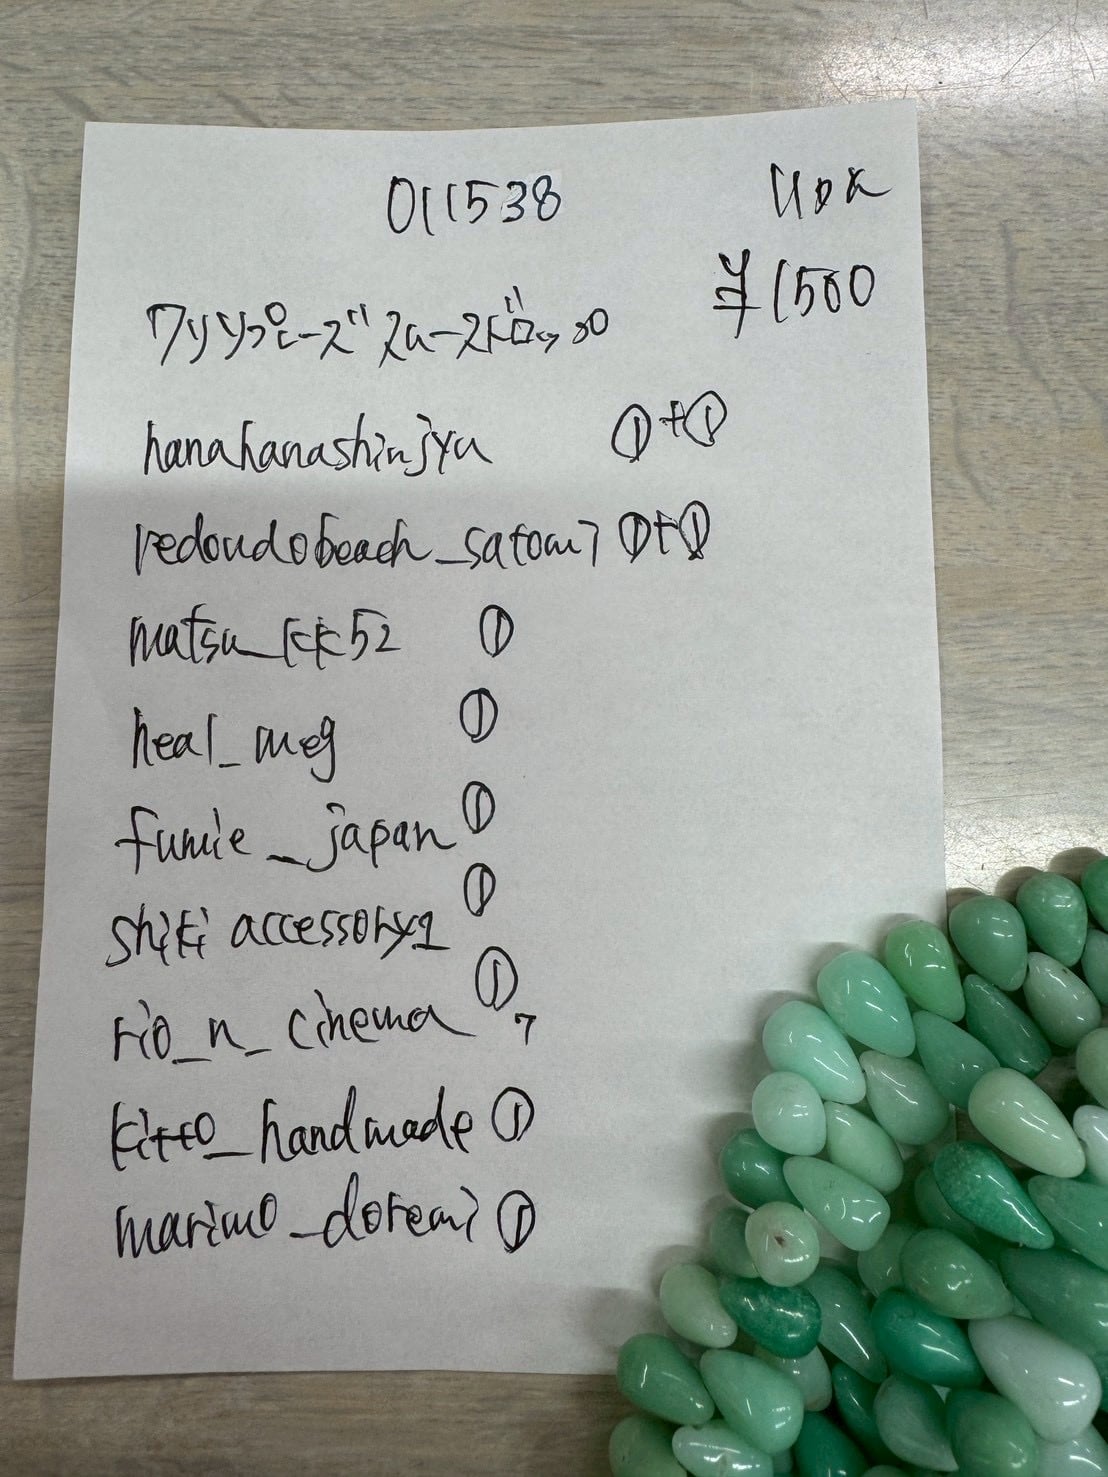 011538
¥1500
クリソプレーズ スムースドロップ
hanahanashinjyu ①+①
redondobeach_satomi ①+①
matsu_kk52 ①
heal_meg ①
fumie_japan ①
shiki accessory1 ①
rio_n_cinema ①
7
kitto_handmade ①
marimo_doremi ①